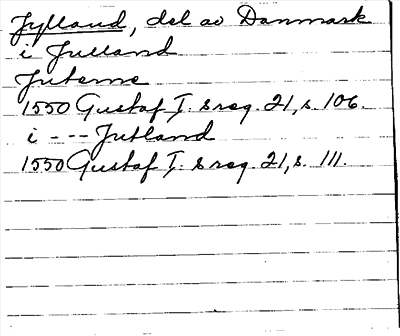 Jylland, del av Danmark
i Julland
Juterne
1550 Gustaf I:s reg. 21, s. 106.
i --- Jutland
1550 Gustaf I:s reg. 21, s. 111.